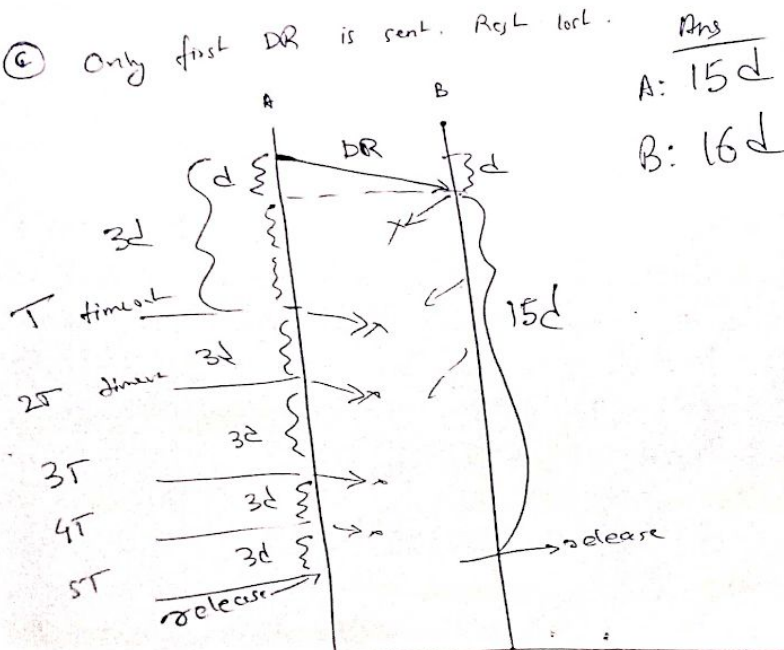 Ⓒ Only first DR is sent. Rest lost.
Ans
A: 15d
B: 16d
A
B
DR
d
d
3d
T timeout
15d
3d
2T
3d
3T
3d
4T
3d
5T
release
release